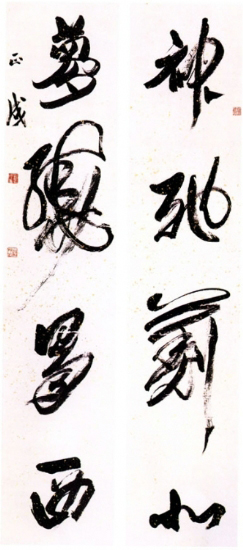 神馳薊北
夢繞粵西
正成